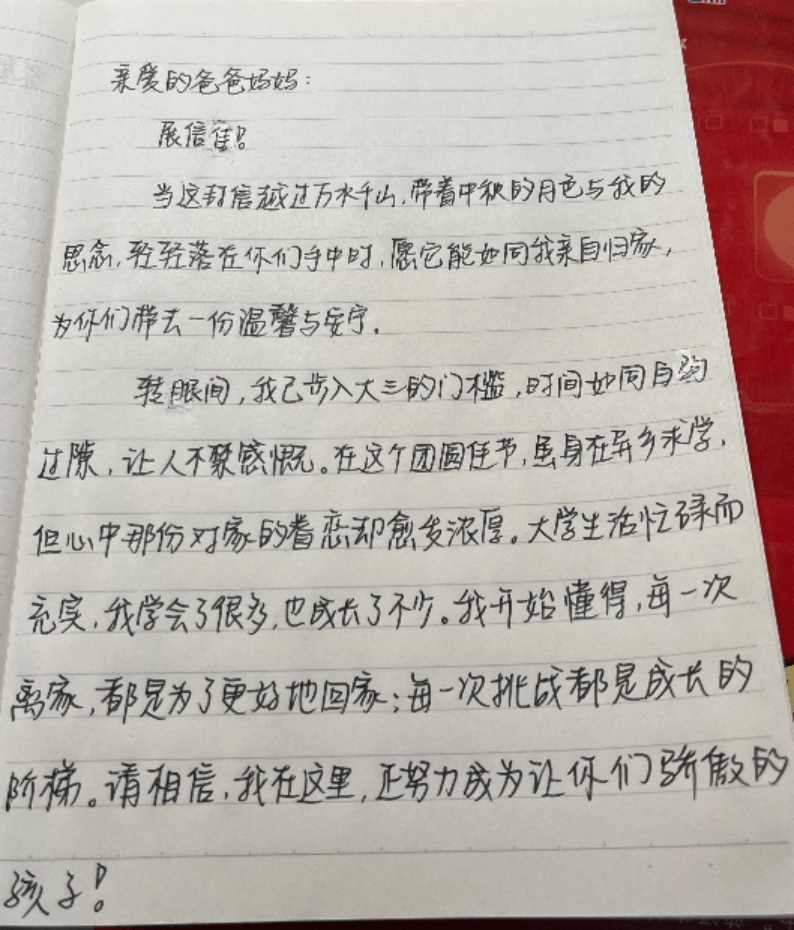 亲爱的爸爸妈妈：
展信佳！
当这封信越过万水千山，带着中秋的月色与我的
思念，轻轻落在你们手中时，愿它能如同我亲自归家，
为你们带去一份温馨与安宁。
转眼间，我已步入大三的门槛，时间如同白驹
过隙，让人不禁感慨。在这个团圆佳节，虽身在异乡求学，
但心中那份对家的眷恋却愈发浓厚。大学生活忙碌而
充实，我学会了很多，也成长了不少。我开始懂得，每一次
离家，都是为了更好地回家；每一次挑战都是成长的
阶梯。请相信，我在这里，正努力成为让你们骄傲的
孩子！